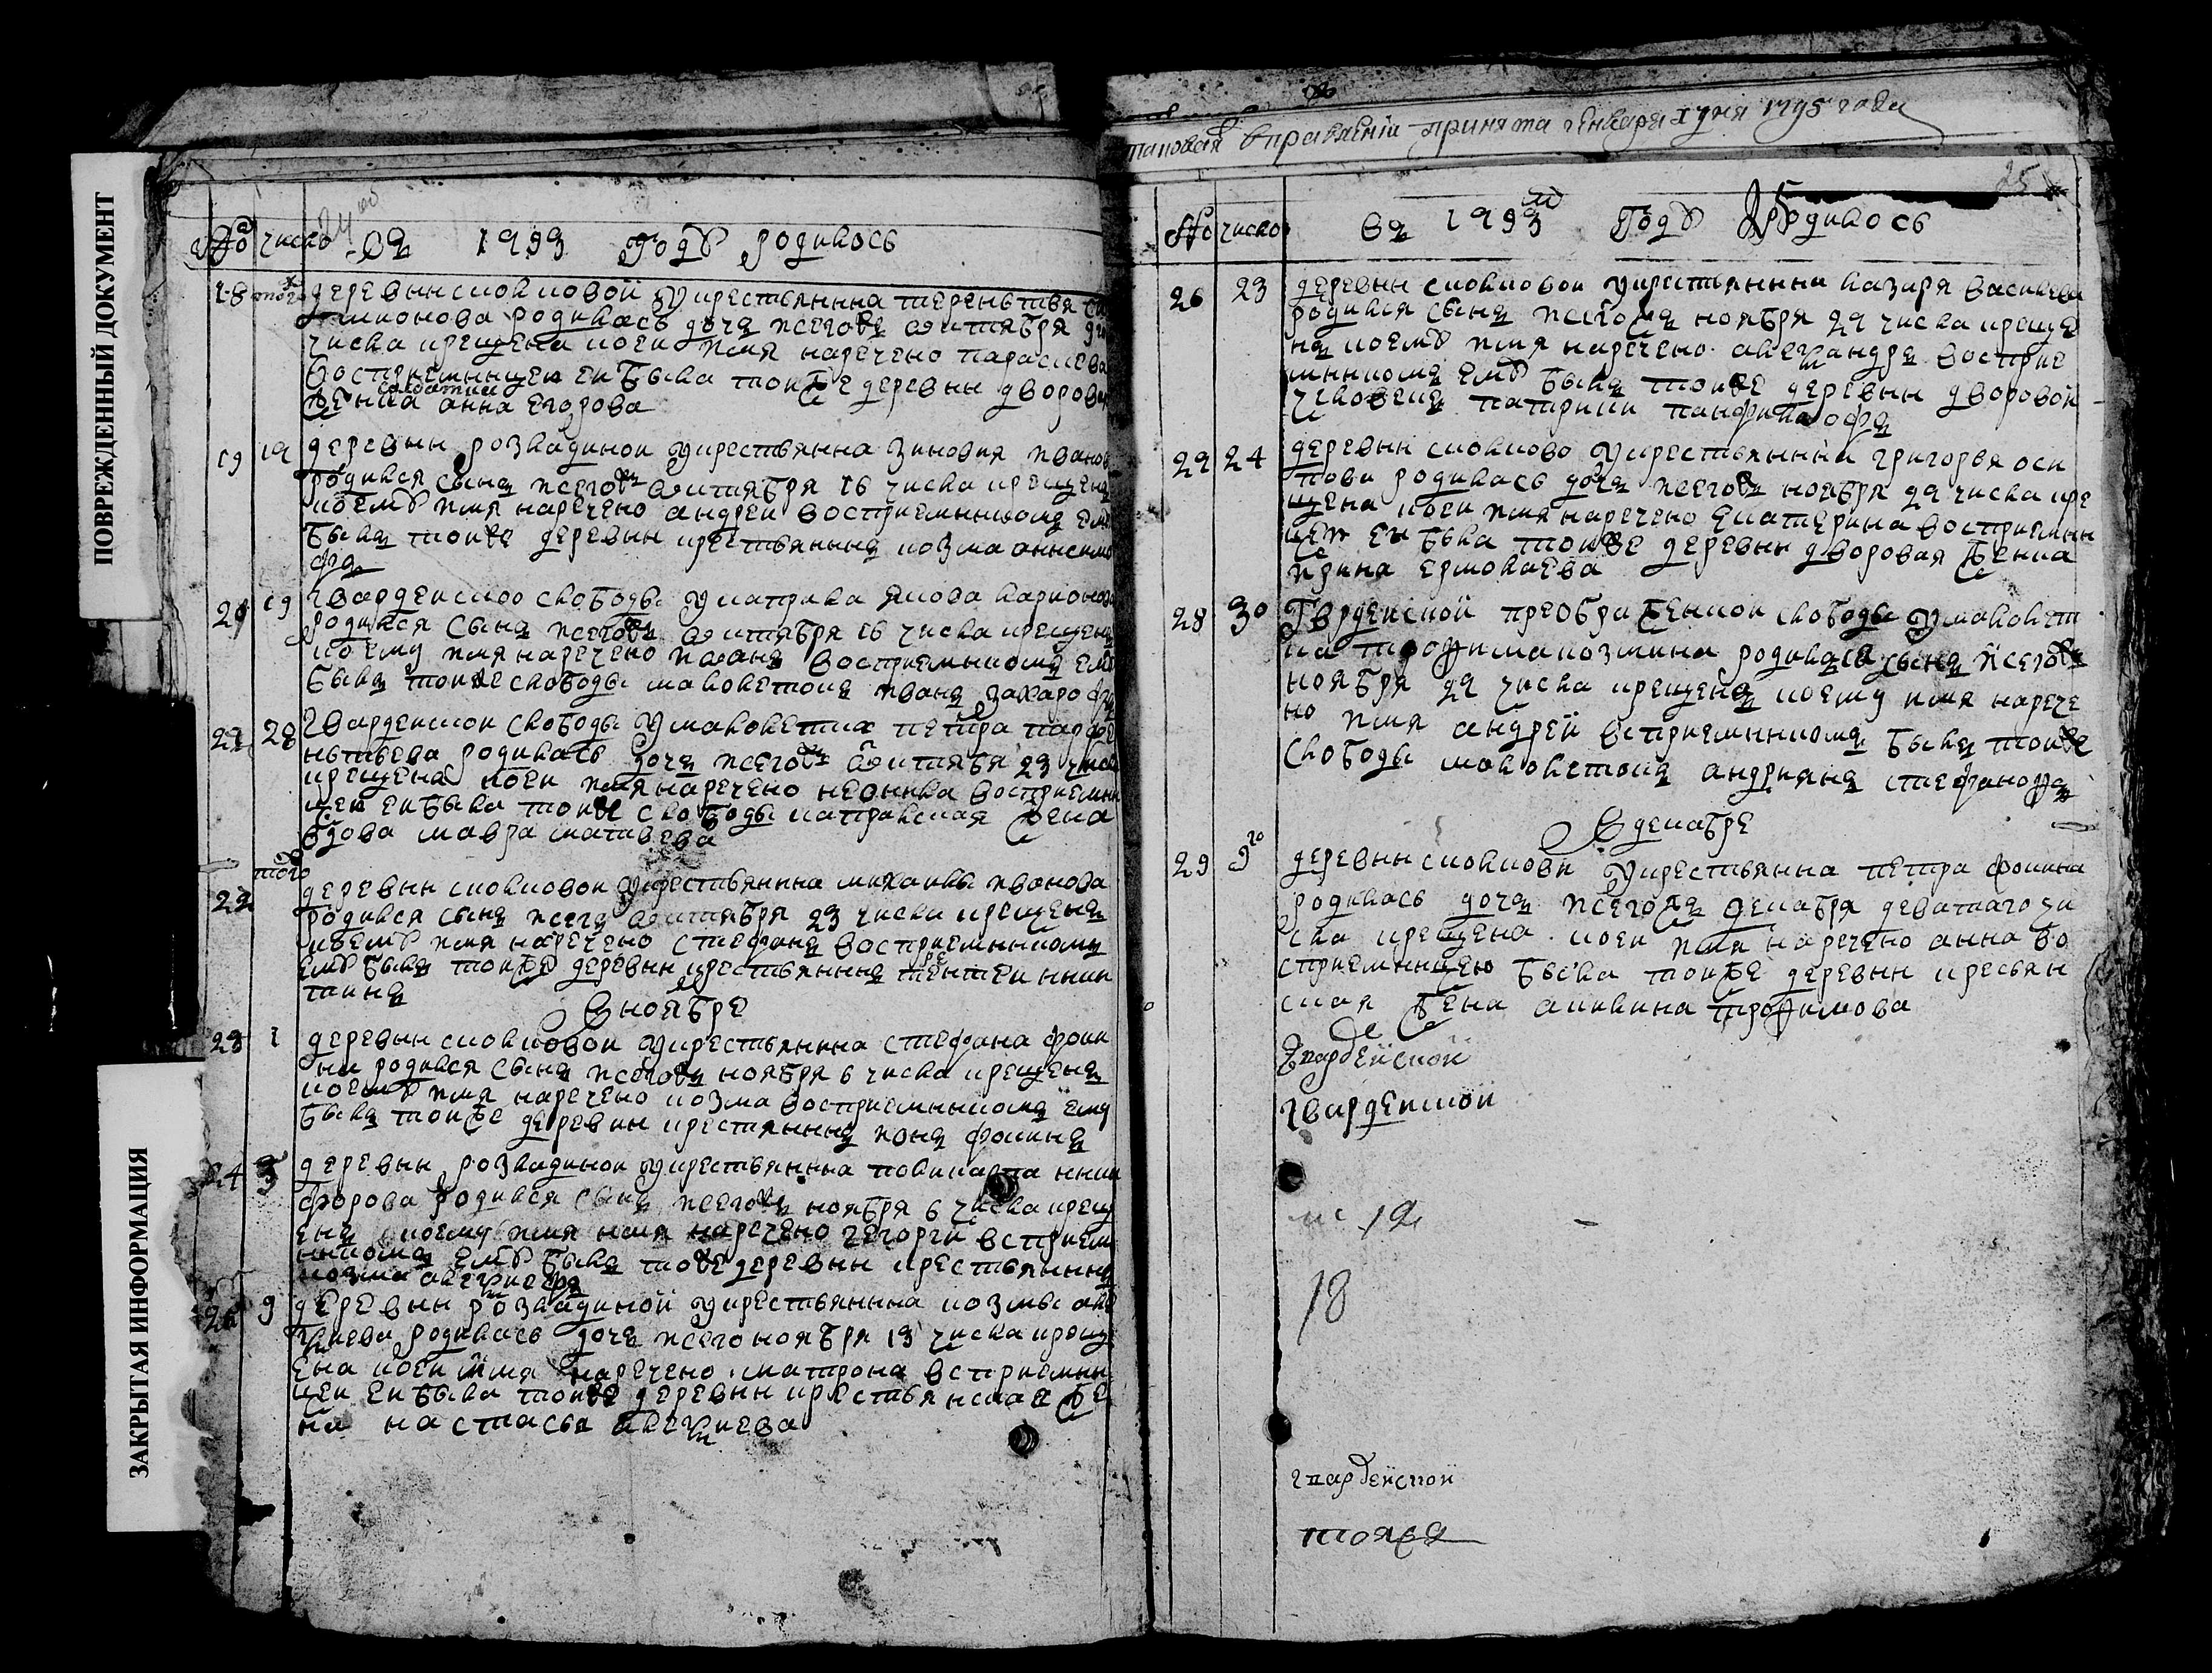 ПОВРЕЖДЕННЫЙ ДОКУМЕНТ
ЗАКРЫТАЯ ИНФОРМАЦИЯ
№ число въ 1793 годѣ родилось
18 того деревни смолковой у крестьянина терентья
родилась дочь исегожъ октября
числа крещена коеи имя наречено параскева
восприемницеи еи была тоиже деревни дворовая
солдатка
женка анна егорова
19 17 деревни розвадинои укрестьянина зиновия иванов
родился сынъ исегожъ октября 16 числа крещенъ
коемѣ имя наречено андреи восприемникомъ емѣ
былъ тоиже деревни крестьянинъ козма
фъ
20 19 гварденскоо слободы у капрала якова ларионова
родился сынъ исегожъ октября 16 числа крещенъ
коему имя наречено иоанъ восприемникомъ емѣ
былъ тоиже слободы малолетокъ иванъ захарофъ
21 28 гварденскои слободы умалолетка петра парфе
нтьева родилась дочь исегожъ октября 23 числа
крещена коеи имя наречено неонила восприемни
цеи еи была тоиже слободы капралская жена
вдова мавра матвеева
22 того деревни смолковои укрестьянина михаилы иванова
родился сынъ исегожъ октября 23 числа крещенъ
коемѣ имя наречено стефанъ восприемникомъ
емѣ былъ тоиже деревни крестьянинъ
В ноябре
23 1 деревни смолковои укрестьянина стефана фоки
на родился сынъ исегожъ ноября 6 числа крещенъ
коемѣ имя наречено козма восприемникомъ ему
былъ тоиже деревни крестянинъ фокинъ
24 3 деревни розвадинои укрестьянина поликарпа ники
форова родился сынъ исегожъ ноября 6 числа крещ
енъ коему имя имя наречено георги всприем
никомъ емѣ былъ тоже деревни крестьянинъ
козма алексиефъ
25 9 деревни розвадиной укрестьянина козмы але
ксиева родилась дочь исего ноября 13 числа крещ
ена коеи имя наречено матрона всприемни
цеи еи была тоиже деревни крестьянская же
на настасья алексиева
становая вправлении принята генваря 1 дня 1795 года
25
№ число въ 1793 м годѣ родилось
26 23 деревни смолковои укрестьянина лазаря василева
родился сынъ исегожъ ноября 27 числа креще
нъ коемѣ имя наречено александръ восприе
мникомъ емѣ былъ тоиже деревни дворовой
человекъ патрикии панфилофъ
27 24 деревни смолково укрестьянина григорья оси
пова родилась дочь исегожъ ноября 27 числа кре
щена коеи имя наречено екатерина восприемни
цеи еи была тоиже деревни дворовая женка
ирина ермолаева
28 30 Гврденской преображенскои слободы умалолет
ка трофима козмина родился сынъ исегожъ
ноября 27 числа крещенъ коему имя нарече
но имя андрей всприемникомъ былъ тоиже
слободы малолетокъ андриянъ стефанофъ
В декабре
29 9 го деревни смолкови укрестьянина петра фокина
родилась дочь исегожъ декабря деватаго чи
сла крещена коеи имя наречено анна во
сприемницею была тоиже деревни кресьян
ская жена акилина трофимова
Гвардейской
гварденской
18
гвардейской
тояжъ